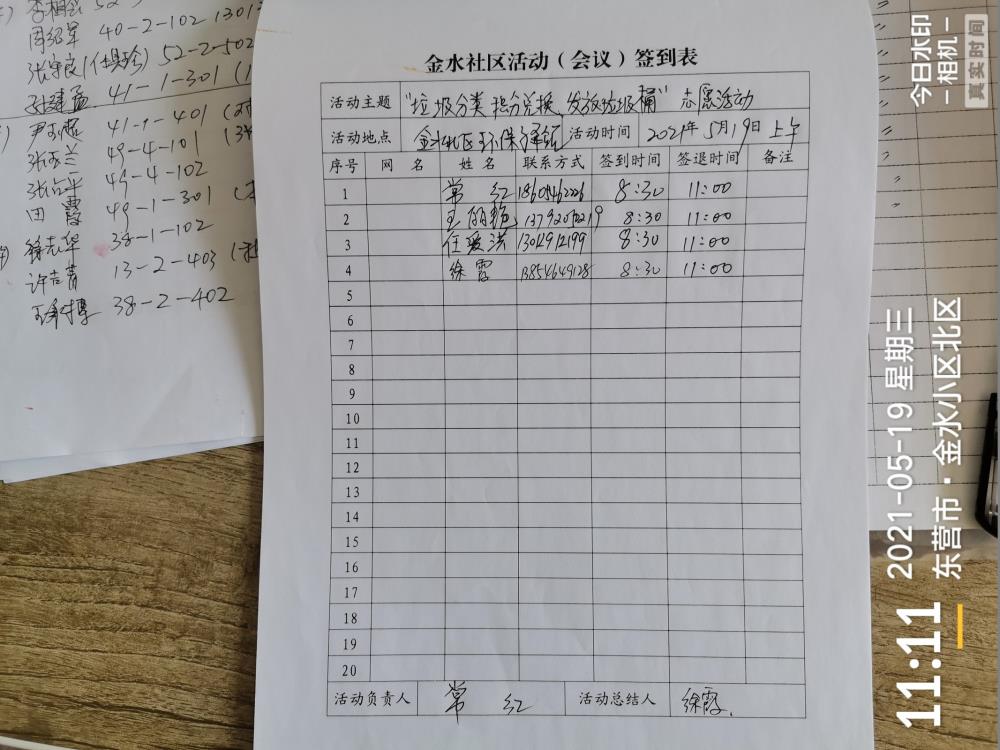 周绍军 40-2-102 1301
52-2-502
41-1-301 (1
41-1-401
张秀兰 49-4-101
49-4-102
田霞 49-1-301
徐志华 38-1-102
许吉菁 13-2-403
38-2-402
金水社区活动（会议）签到表
活动主题 "垃圾分类 积分兑换 发放垃圾桶" 志愿活动
活动地点 活动时间 2021年5月19日上午
序号 网 名 姓 名 联系方式 签到时间 签退时间 备注
1 常 红 8:30 11:00
2 王丽艳 8:30 11:00
3 任爱洪 13012912199 8:30 11:00
4 徐霞 13854649128 8:30 11:00
5
6
7
8
9
10
11
12
13
14
15
16
17
18
19
20
活动负责人 常 红 活动总结人 徐霞.
11:11
2021-05-19 星期三
东营市·金水小区北区
今日水印
-相机-
真实时间